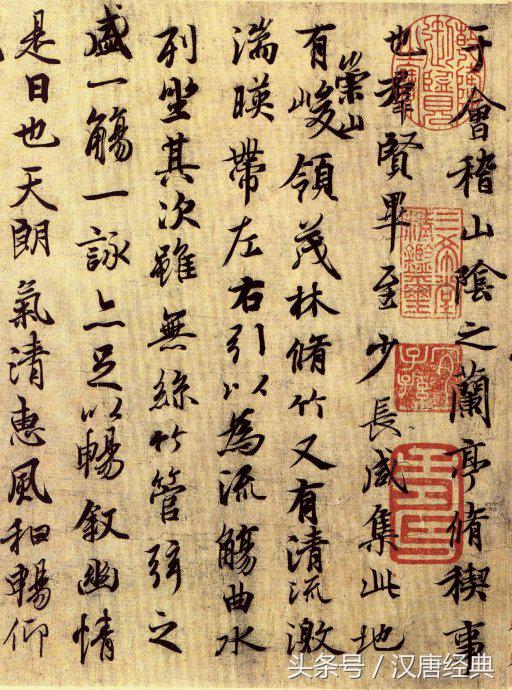 于會稽山陰之蘭亭脩禊事
也羣賢畢至少長咸集此地
有崇山峻領茂林脩竹又有清流激
湍暎帶左右引以為流觴曲水
列坐其次雖無絲竹管弦之
盛一觴一詠亦足以暢敘幽情
是日也天朗氣清惠風和暢仰
三希堂精鑑璽
宜子孫
头条号 / 汉唐经典